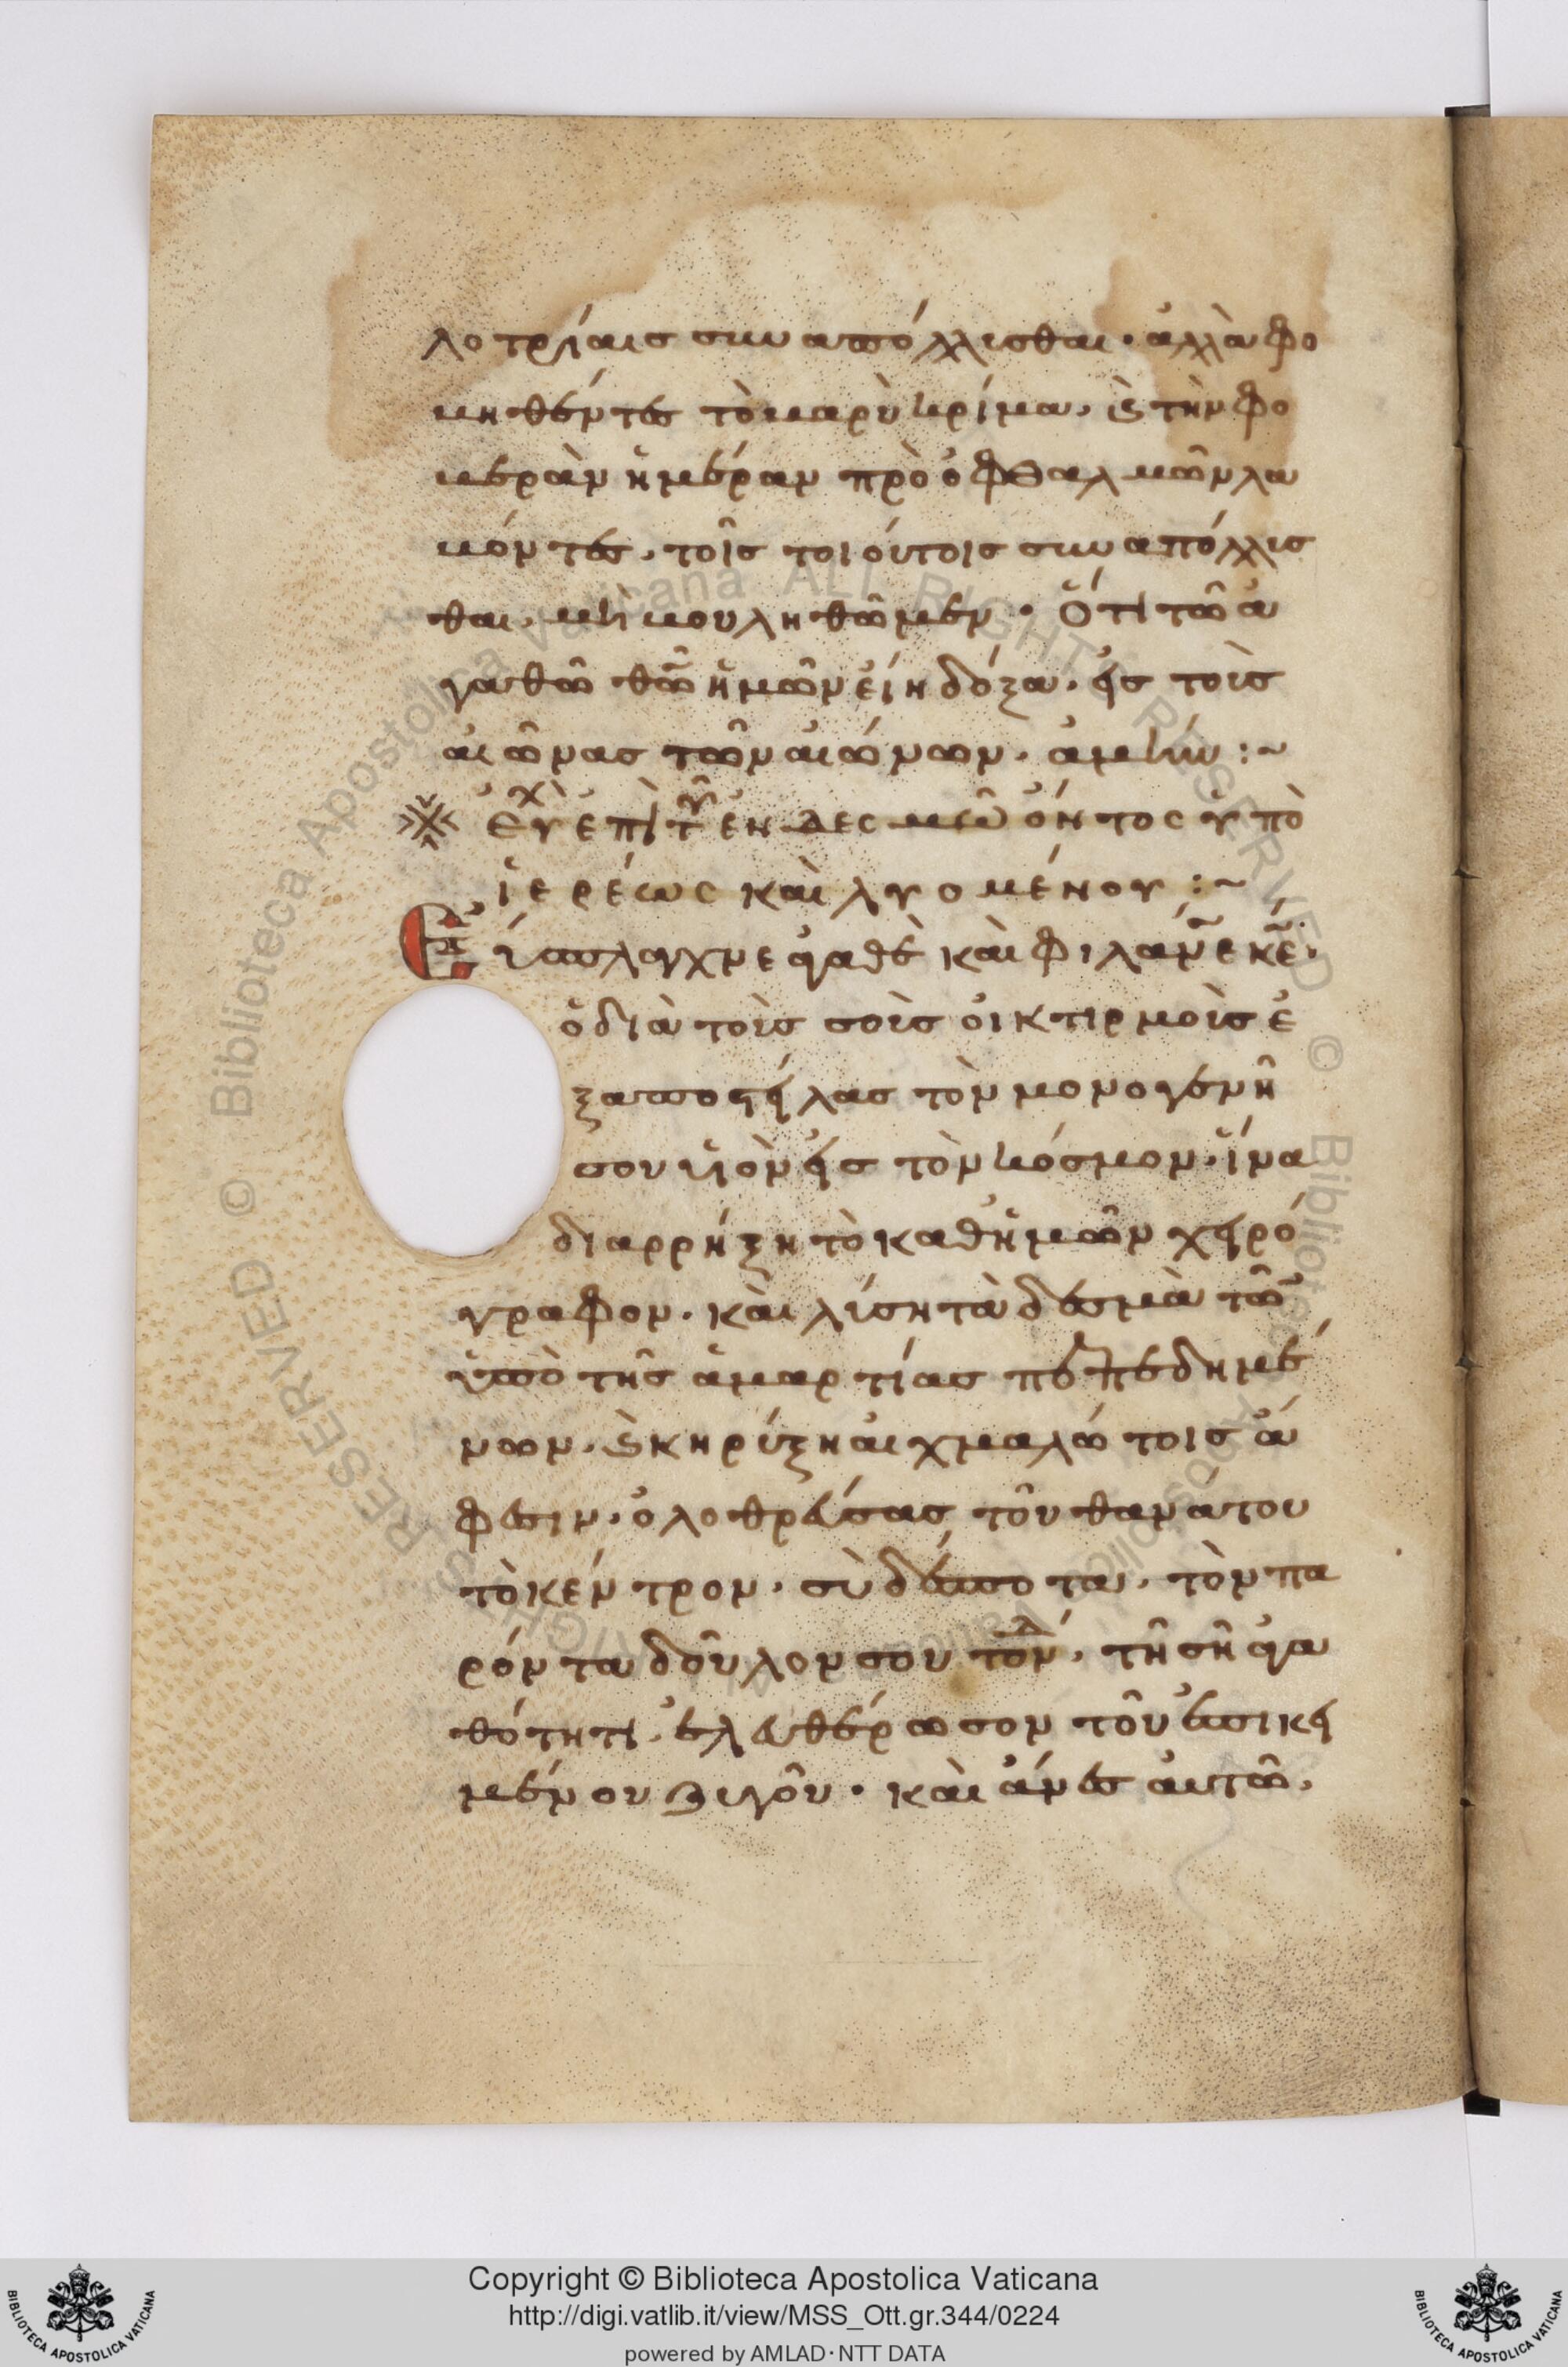 λοτρίαις συναπόλλισθαι· ἀλλὰ φο
βηθέντες τὸ βαρὺ κρίμα, ϗ τὴν φο
βερὰν ἡμέραν πρὸ ὀφθαλμῶν λα
βόντες, τοῖς τοιούτοις συναπόλλισ
θαι, μὴ βουληθῶμεν· Ὅτι τῶ ἀ
γαθῶ θῶ ἡμῶν εἴη δόξα, εἰς τοὶς
αἰῶνας τῶν αἰώνων, ἀμήν :~
Εὐχ ἐπὶ τοῦ ἐν δεσμῶ ὄντος ὑπὸ
ἱερέως καὶ λυομένου :~
Εὔσπλαγχνε ἀγαθὲ καὶ φιλάνε κε·
ὁ διὰ τοὶς σοὶς οἰκτιρμοὶς ἐ
ξαποστείλας τὸν μονογενῆ
σου υἱὸν εἰς τὸν κόσμον· ἵνα
διαρρήξη τὸ καθ' ἡμῶν χειρό
γραφον· καὶ λύση τὰ δεσμὰ τῶν
ὑπὸ τῆς ἁμαρτίας πεπεδημέ
νων, ϗ κηρύξη αἰχμαλώτοις ἄ
φεσιν· ὀλοθρεύσας τοῦ θανάτου
τὸ κέντρον· σὺ δέσποτα, τὸν πα
ρόντα δοῦλον σου τὸνδ, τῆ σῆ ἀγα
θότητι, ἐλευθέρωσον τοῦ ἐπικει
μένου ζυγοῦ· καὶ ἄνες αὐτῶ,
Copyright © Biblioteca Apostolica Vaticana
http://digi.vatlib.it/view/MSS_Ott.gr.344/0224
powered by AMLAD·NTT DATA